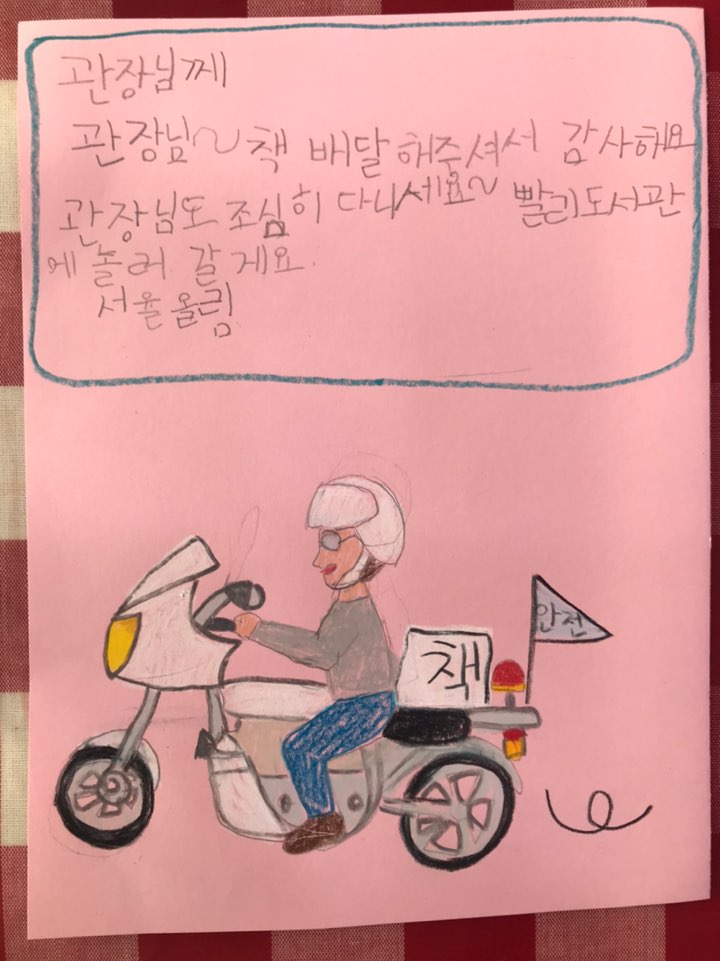 관장님께
관장님~ 책 배달해주셔서 감사해요
관장님도 조심히 다니세요~ 빨리도서관
에 놀러 갈게요.
서율올림
책
안전